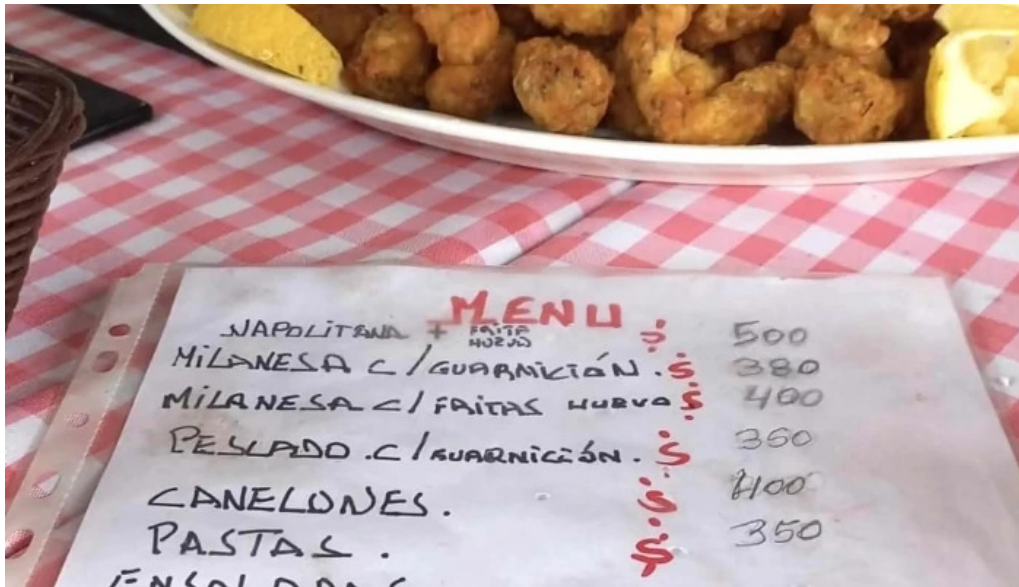 MENU
NAPOLITANA + FRITA HUEVO $ 500
MILANESA C/GUARNICIÓN. $ 380
MILANESA C/ FRITAS HUEVO $ 400
PESCADO.C/GUARNICIÓN. $ 350
CANELONES. $ 400
PASTAS. $ 350
ENSALADAS